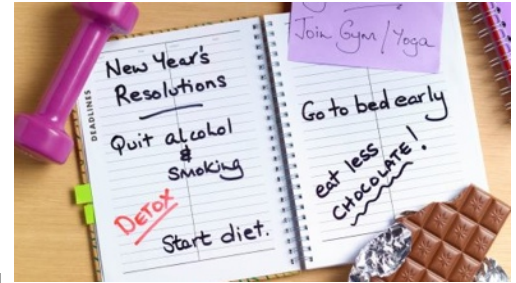 New Year's
Resolutions
Quit alcohol
&
Smoking
DETOX
Start diet.
DEADLINES
Join Gym / Yoga
Go to bed early
eat less
CHOCOLATE!